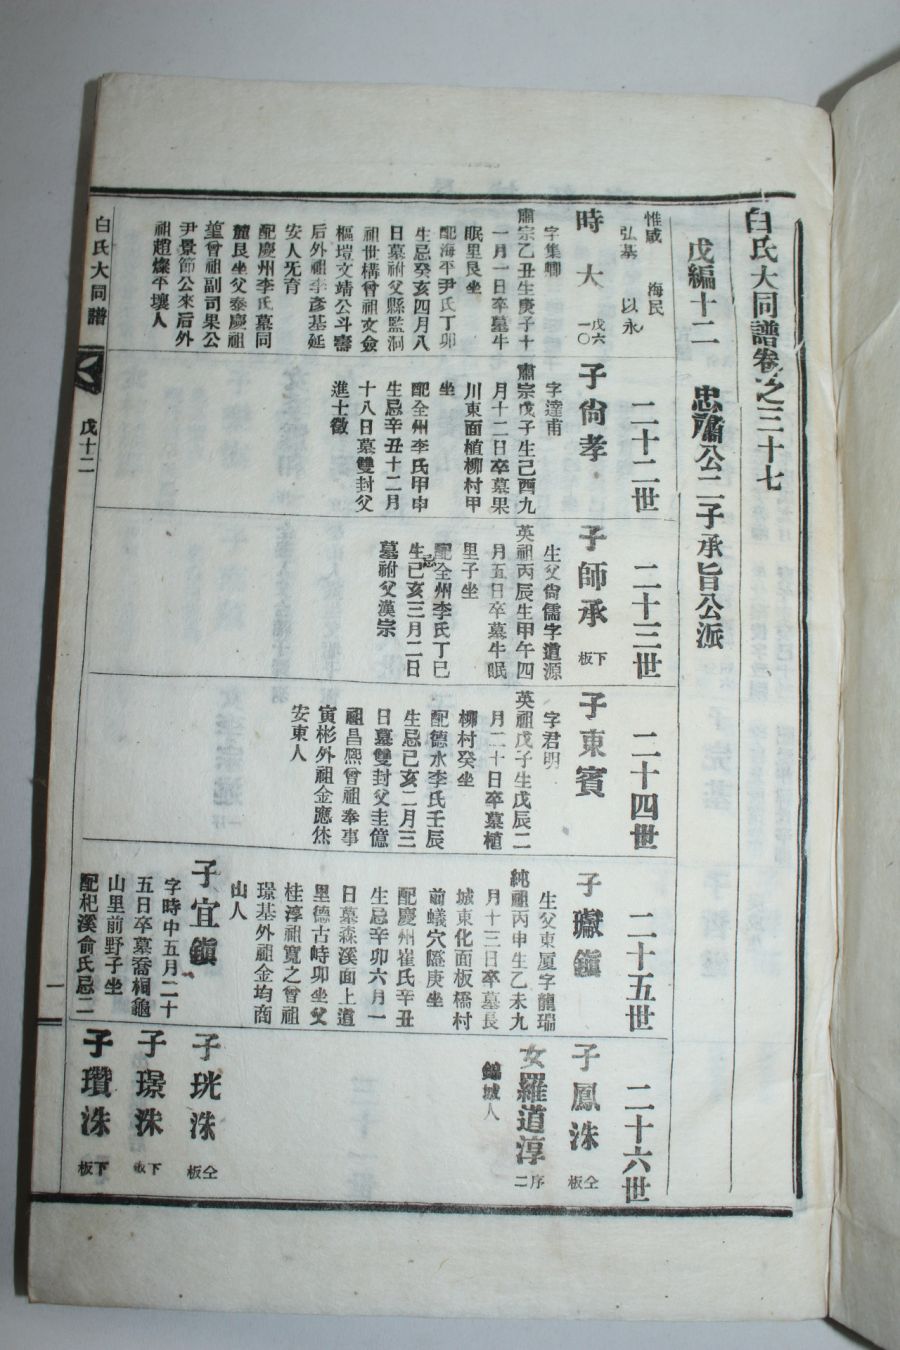 白氏大同譜卷之三十七
戊編十二 忠肅公二子承旨公派
惟咸 海民
弘基 以永
時大 戊六一〇
字集卿
肅宗乙丑生庚子十
一月一日卒墓牛
眠里艮坐
配海平尹氏丁卯
生忌癸亥四月八
日墓祔父縣監洞
祖世構曾祖文僉
樞塏文靖公斗壽
后外祖李彥基延
安人无育
配慶州李氏墓同
麓艮坐父泰慶祖
堇曾祖副司果公
尹景節公來后外
祖趙燦平壤人
二十二世
子尙孝
字達甫
肅宗戊子生己酉九
月十二日卒墓果
川東面植柳村甲
坐
配全州李氏甲申
生忌辛丑十二月
十八日墓雙封父
進士徵
二十三世
子師承 下板
生父尙儒字道源
英祖丙辰生甲午四
月五日卒墓牛眠
里子坐
配全州李氏丁巳
生忌己亥三月二日
墓祔父漢宗
二十四世
子東賓
字君明
英祖戊子生戊辰二
月二十日卒墓植
柳村癸坐
配德水李氏壬辰
生忌己亥二月三
日墓雙封父圭億
祖昌熙曾祖奉事
寅彬外祖金應烋
安東人
二十五世
子瓛鎭
生父東厦字龍瑞
純祖丙申生乙未九
月十三日卒墓長
城東化面板橋村
前蟻穴嶝庚坐
配慶州崔氏辛丑
生忌辛卯六月一
日墓森溪面上道
里德古峙卯坐父
桂淳祖寬之曾祖
璟基外祖金均商
山人
子宜鎭
字時中五月二十
五日卒墓喬桐龜
山里前野子坐
配杞溪俞氏忌二
二十六世
子鳳洙 仝板
女羅道淳 序二
錦城人
子珖洙 仝板
子璟洙 下板
子瓚洙 下板
白氏大同譜 戊十二 一